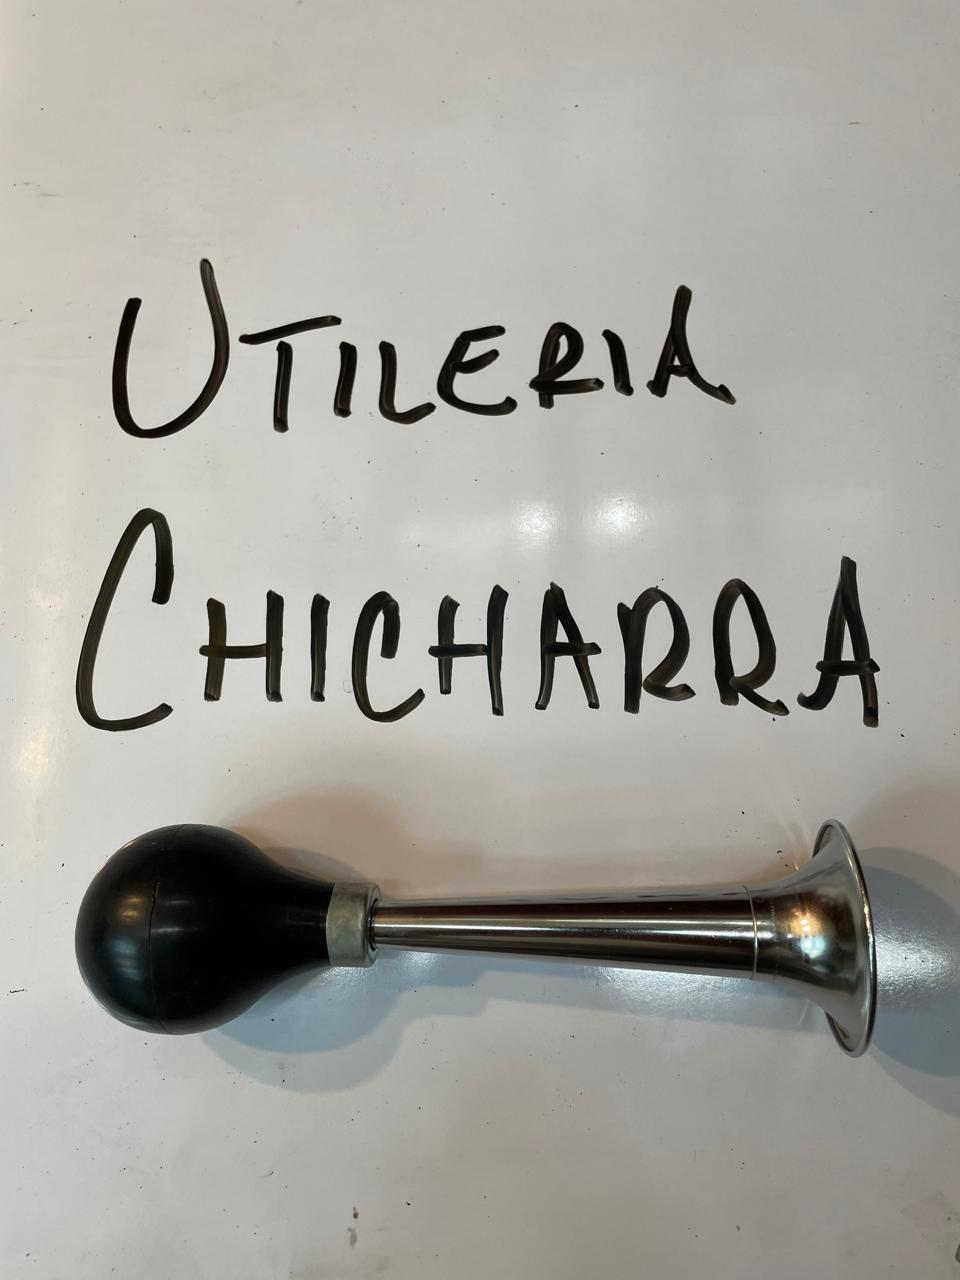 UTILERIA
CHICHARRA